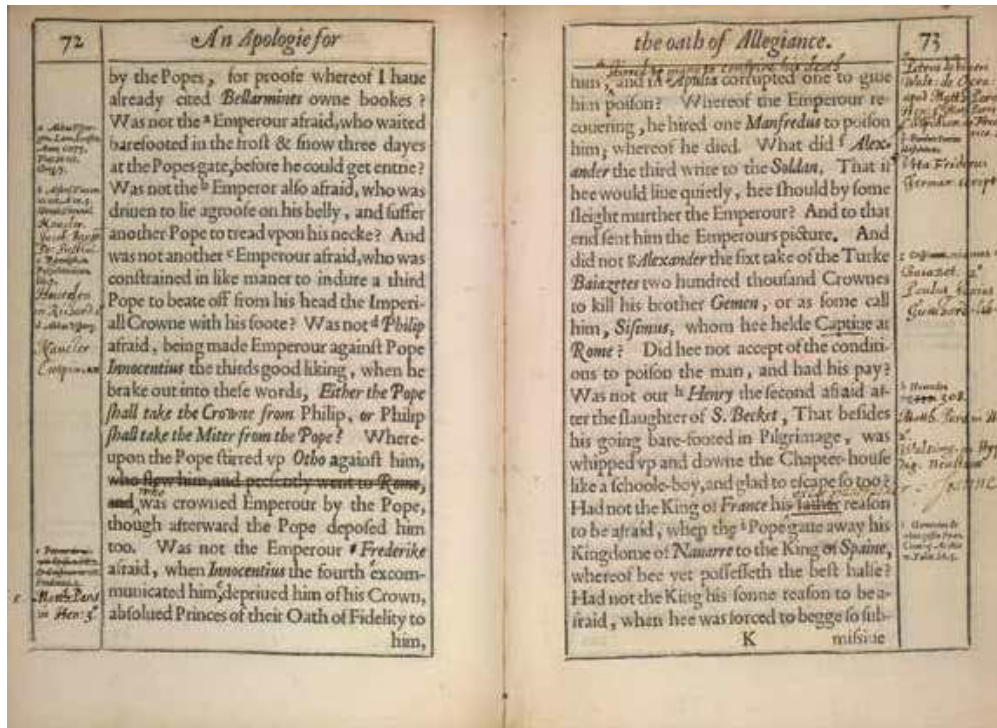 72
An Apologie for
by the Popes, for proofe whereof I haue
already cited Bellarmines owne bookes?
Was not the a Emperour afraid, who waited
barefooted in the frost & snow three dayes
at the Popes gate, before he could get entrie?
Was not the b Emperor also afraid, who was
driuen to lie agroofe on his belly, and suffer
another Pope to tread vpon his necke? And
was not another c Emperour afraid, who was
constrained in like maner to indure a third
Pope to beate off from his head the Imperi-
all Crowne with his foote? Was not d Philip
afraid, being made Emperour against Pope
Innocentius the thirds good liking, when he
brake out into these words, Either the Pope
shall take the Crowne from Philip, or Philip
shall take the Miter from the Pope? Where-
upon the Pope stirred vp Otho against him,
who slew him, and presently went to Rome,
and was crowned Emperour by the Pope,
though afterward the Pope deposed him
too. Was not the Emperour e Frederike
afraid, when Innocentius the fourth excom-
municated him, depriued him of his Crown,
absolued Princes of their Oath of Fidelity to
him,
Nauclerus
Cuspinian
Math Paris
in Hen: 3
the oath of Allegiance.
73
him, and in Apulia corrupted one to giue
him poison? Whereof the Emperour re-
couering, he hired one Manfredus to poison
him; whereof he died. What did f Alex-
ander the third write to the Soldan, That if
hee would liue quietly, hee should by some
sleight murther the Emperour? And to that
end sent him the Emperours picture. And
did not g Alexander the sixt take of the Turke
Baiazetes two hundred thousand Crownes
to kill his brother Gemen, or as some call
him, Sisimus, whom hee helde Captiue at
Rome? Did hee not accept of the conditi-
ons to poison the man, and had his pay?
Was not our h Henry the second afraid af-
ter the slaughter of S. Becket, That besides
his going bare-footed in Pilgrimage, was
whipped vp and downe the Chapter-house
like a schoole-boy, and glad to escape so too?
Had not the King of France his father reason
to be afraid, when the Pope gaue away his
Kingdome of Nauarre to the King of Spaine,
whereof hee yet possesseth the best halfe?
Had not the King his sonne reason to be a-
fraid, when hee was forced to begge so sub-
K
missiue